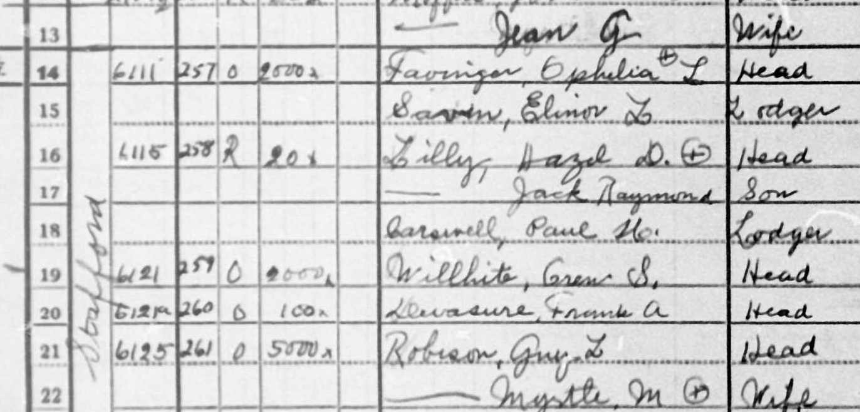 13 Jean G Wife
14 6111 257 O 2000x Favinger, Ophelia ⊕ L Head
15 Elinor L Lodger
16 6115 258 R 20x Lilly, Hazel D. ⊕ Head
17 — Jack Raymond Son
18 Carswell, Paul H. Lodger
19 6121 259 O 2000x Willhite, Oren S. Head
20 6121a 260 O 100x Devasure, Frank A Head
21 6125 261 O 5000x Robison, Guy L Head
22 — Myrtle, M ⊕ Wife
Stafford